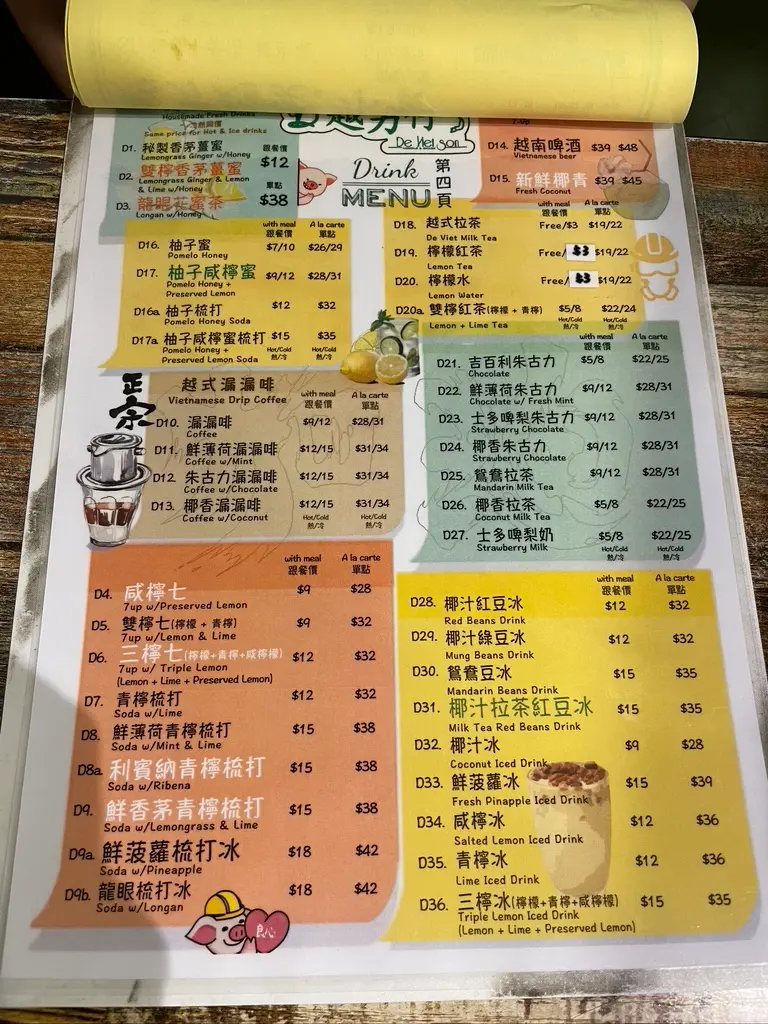 Homemade Fresh Drinks
Same price for Hot & Ice drinks
D1. 秘製香茅薑蜜
Lemongrass Ginger w/Honey
D2. 雙檸香茅薑蜜
Lemongrass Ginger & Lemon
& Lime w/Honey
D3. 龍眼花蜜茶
Longan w/Honey
跟餐價
$12
單點
$38
De Viet Son
Drink
MENU
第四頁
7up
D14. 越南啤酒 $39 $48
Vietnamese beer
D15. 新鮮椰青 $39 $45
Fresh Coconut
with meal A la carte
跟餐價 單點
D16. 柚子蜜 $7/10 $26/29
Pomelo Honey
D17. 柚子咸檸蜜 $9/12 $28/31
Pomelo Honey +
Preserved Lemon
D16a 柚子梳打 $12 $32
Pomelo Honey Soda
D17a 柚子咸檸蜜梳打 $15 $35
Pomelo Honey +
Preserved Lemon Soda
Hot/Cold Hot/Cold
熱/冷 熱/冷
with meal A la carte
跟餐價 單點
D18. 越式拉茶 Free/$3 $19/22
De Viet Milk Tea
D19. 檸檬紅茶 Free/$3 $19/22
Lemon Tea
D20. 檸檬水 Free/$3 $19/22
Lemon Water
D20a 雙檸紅茶(檸檬 + 青檸) $5/8 $22/24
Lemon + Lime Tea
Hot/Cold Hot/Cold
熱/冷 熱/冷
正宗
越式滴滴啡
Vietnamese Drip Coffee
with meal A la carte
跟餐價 單點
D10. 滴滴啡 $9/12 $28/31
Coffee
D11. 鮮薄荷滴滴啡 $12/15 $31/34
Coffee w/Mint
D12. 朱古力滴滴啡 $12/15 $31/34
Coffee w/Chocolate
D13. 椰香滴滴啡 $12/15 $31/34
Coffee w/Coconut
Hot/Cold Hot/Cold
熱/冷 熱/冷
with meal A la carte
跟餐價 單點
D21. 吉百利朱古力 $5/8 $22/25
Chocolate
D22. 鮮薄荷朱古力 $9/12 $28/31
Chocolate w/Fresh Mint
D23. 士多啤梨朱古力 $9/12 $28/31
Strawberry Chocolate
D24. 椰香朱古力 $9/12 $28/31
Strawberry Chocolate
D25. 鴛鴦拉茶 $9/12 $28/31
Mandarin Milk Tea
D26. 椰香拉茶 $5/8 $22/25
Coconut Milk Tea
D27. 士多啤梨奶 $5/8 $22/25
Strawberry Milk
Hot/Cold Hot/Cold
熱/冷 熱/冷
with meal A la carte
跟餐價 單點
D4. 咸檸七 $9 $28
7up w/Preserved Lemon
D5. 雙檸七(檸檬 + 青檸) $9 $32
7up w/Lemon & Lime
D6. 三檸七(檸檬+青檸+咸檸檬) $12 $32
7up w/ Triple Lemon
(Lemon + Lime + Preserved Lemon)
D7. 青檸梳打 $12 $32
Soda w/Lime
D8. 鮮薄荷青檸梳打 $15 $38
Soda w/Mint & Lime
D8a 利賓納青檸梳打 $15 $38
Soda w/Ribena
D9. 鮮香茅青檸梳打 $15 $38
Soda w/Lemongrass & Lime
D9a. 鮮菠蘿梳打冰 $18 $42
Soda w/Pineapple
D9b. 龍眼梳打冰 $18 $42
Soda w/Longan
良心
with meal A la carte
跟餐價 單點
D28. 椰汁紅豆冰 $12 $32
Red Beans Drink
D29. 椰汁綠豆冰 $12 $32
Mung Beans Drink
D30. 鴛鴦豆冰 $15 $35
Mandarin Beans Drink
D31. 椰汁拉茶紅豆冰 $15 $35
Milk Tea Red Beans Drink
D32. 椰汁冰 $9 $28
Coconut Iced Drink
D33. 鮮菠蘿冰 $15 $39
Fresh Pinapple Iced Drink
D34. 咸檸冰 $12 $36
Salted Lemon Iced Drink
D35. 青檸冰 $12 $36
Lime Iced Drink
D36. 三檸冰(檸檬+青檸+咸檸檬) $15 $35
Triple Lemon Iced Drink
(Lemon + Lime + Preserved Lemon)